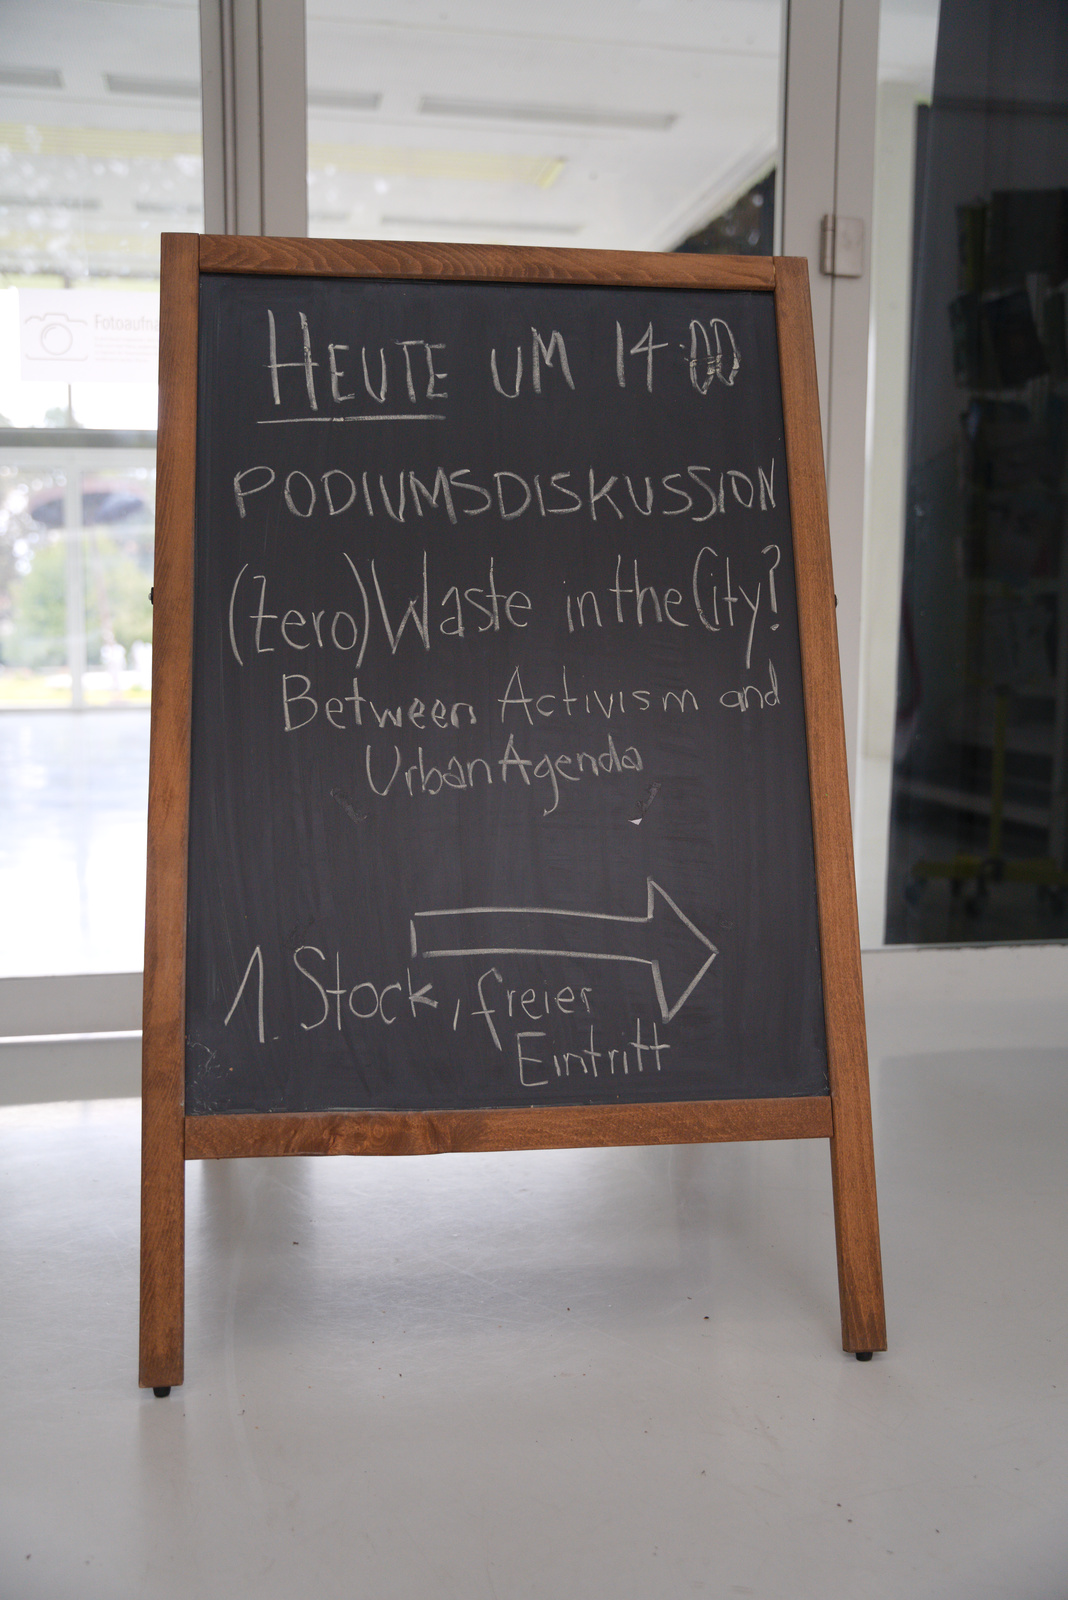 HEUTE UM 14:00
PODIUMSDISKUSSION
(Zero) Waste in the City?
Between Activism and
Urban Agenda
1. Stock, freier
Eintritt